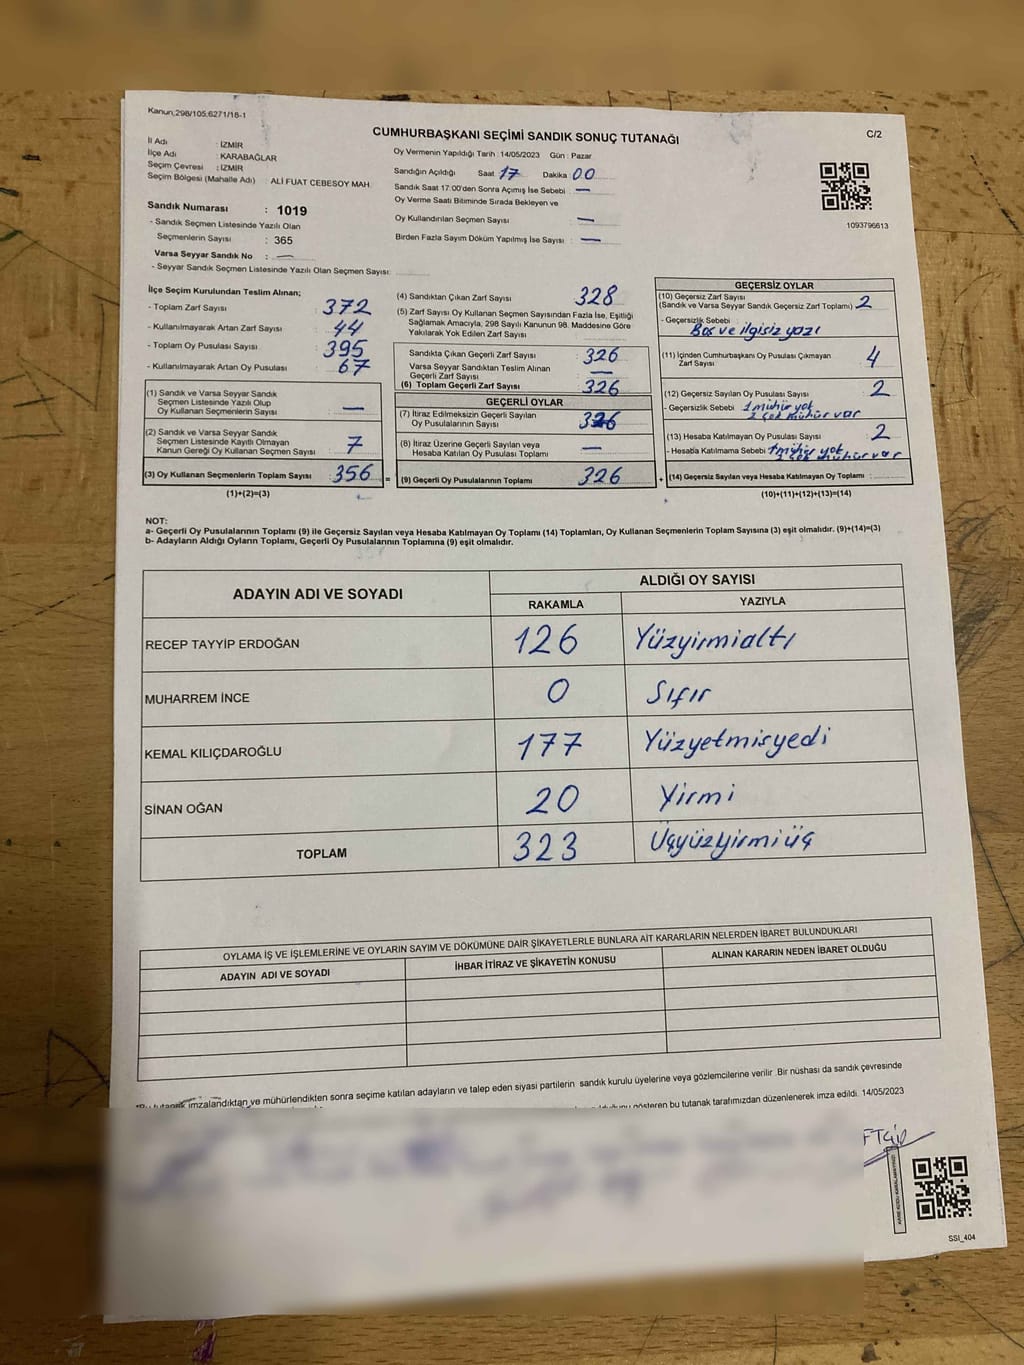 Kanun,298/105:6271/18-1
CUMHURBAŞKANI SEÇİMİ SANDIK SONUÇ TUTANAĞI
C/2
İl Adı : İZMİR
İlçe Adı : KARABAĞLAR
Seçim Çevresi : İZMİR
Seçim Bölgesi (Mahalle Adı) : ALİ FUAT CEBESOY MAH.
Oy Vermenin Yapıldığı Tarih : 14/05/2023 Gün : Pazar
Sandığın Açıldığı Saat 17 Dakika 00
Sandık Saat 17:00'den Sonra Açımış İse Sebebi : —
Oy Verme Saati Bitiminde Sırada Bekleyen ve
Oy Kullandırılan Seçmen Sayısı : —
Birden Fazla Sayım Döküm Yapılmış İse Sayısı : —
1093796613
Sandık Numarası : 1019
- Sandık Seçmen Listesinde Yazılı Olan
Seçmenlerin Sayısı : 365
Varsa Seyyar Sandık No : —
- Seyyar Sandık Seçmen Listesinde Yazılı Olan Seçmen Sayısı:
İlçe Seçim Kurulundan Teslim Alınan;
- Toplam Zarf Sayısı : 372
- Kullanılmayarak Artan Zarf Sayısı : 44
- Toplam Oy Pusulası Sayısı : 395
- Kullanılmayarak Artan Oy Pusulası : 67
(1) Sandık ve Varsa Seyyar Sandık
Seçmen Listesinde Yazılı Olup
Oy Kullanan Seçmenlerin Sayısı : —
(2) Sandık ve Varsa Seyyar Sandık
Seçmen Listesinde Kayıtlı Olmayan
Kanun Gereği Oy Kullanan Seçmen Sayısı : 7
(3) Oy Kullanan Seçmenlerin Toplam Sayısı : 356
(1)+(2)=(3)
(4) Sandıktan Çıkan Zarf Sayısı : 328
(5) Zarf Sayısı Oy Kullanan Seçmen Sayısından Fazla İse, Eşitliği
Sağlamak Amacıyla, 298 Sayılı Kanunun 98. Maddesine Göre
Yakılarak Yok Edilen Zarf Sayısı :
Sandıkta Çıkan Geçerli Zarf Sayısı : 326
Varsa Seyyar Sandıktan Teslim Alınan
Geçerli Zarf Sayısı : —
(6) Toplam Geçerli Zarf Sayısı : 326
GEÇERLİ OYLAR
(7) İtiraz Edilmeksizin Geçerli Sayılan
Oy Pusulalarının Sayısı : 326
(8) İtiraz Üzerine Geçerli Sayılan veya
Hesaba Katılan Oy Pusulaları Toplamı : —
= (9) Geçerli Oy Pusulalarının Toplamı : 326
GEÇERSİZ OYLAR
(10) Geçersiz Zarf Sayısı
(Sandık ve Varsa Seyyar Sandık Geçersiz Zarf Toplamı) : 2
- Geçersizlik Sebebi :
Boş ve ilgisiz yazı
(11) İçinden Cumhurbaşkanı Oy Pusulası Çıkmayan
Zarf Sayısı : 4
(12) Geçersiz Sayılan Oy Pusulası Sayısı : 2
- Geçersizlik Sebebi : 1 mühür yok
1 çok mühür var
(13) Hesaba Katılmayan Oy Pusulası Sayısı : 2
- Hesaba Katılmama Sebebi : 1 mühür yok
1 çok mühür var
+ (14) Geçersiz Sayılan veya Hesaba Katılmayan Oy Toplamı :
(10)+(11)+(12)+(13)=(14)
NOT:
a- Geçerli Oy Pusulalarının Toplamı (9) ile Geçersiz Sayılan veya Hesaba Katılmayan Oy Toplamı (14) Toplamları, Oy Kullanan Seçmenlerin Toplam Sayısına (3) eşit olmalıdır. (9)+(14)=(3)
b- Adayların Aldığı Oyların Toplamı, Geçerli Oy Pusulalarının Toplamına (9) eşit olmalıdır.
ADAYIN ADI VE SOYADI
ALDIĞI OY SAYISI
RAKAMLA YAZIYLA
RECEP TAYYİP ERDOĞAN 126 Yüzyirmialtı
MUHARREM İNCE 0 Sıfır
KEMAL KILIÇDAROĞLU 177 Yüzyetmişyedi
SİNAN OĞAN 20 Yirmi
TOPLAM 323 Üçyüzyirmiüç
OYLAMA İŞ VE İŞLEMLERİNE VE OYLARIN SAYIM VE DÖKÜMÜNE DAİR ŞİKAYETLERLE BUNLARA AİT KARARLARIN NELERDEN İBARET BULUNDUKLARI
ADAYIN ADI VE SOYADI İHBAR İTİRAZ VE ŞİKAYETİN KONUSU ALINAN KARARIN NEDEN İBARET OLDUĞU
*Bu tutanak imzalandıktan ve mühürlendikten sonra seçime katılan adayların ve talep eden siyasi partilerin sandık kurulu üyelerine veya gözlemcilerine verilir .Bir nüshası da sandık çevresinde
gösteren bu tutanak tarafımızdan düzenlenerek imza edildi. 14/05/2023
SSI_404